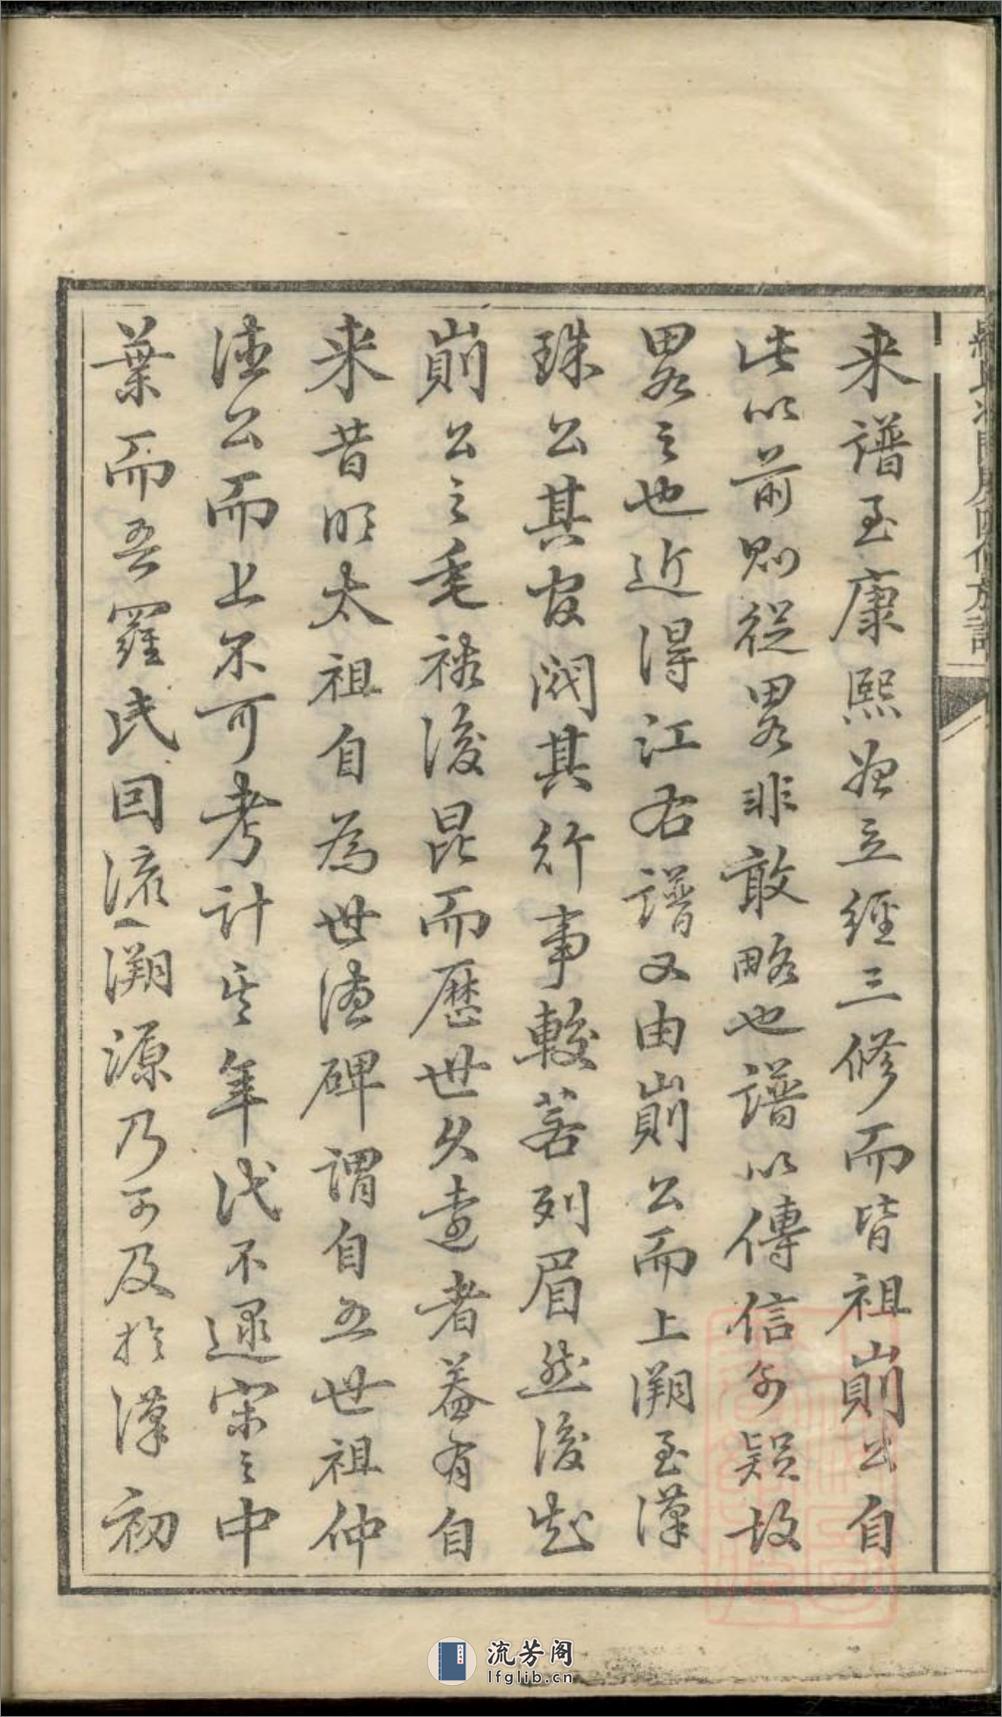 来譜至康熙始立經三修而皆祖崱公自
此以前則從畧非敢略也譜以傳信勿疑故
畧之也近得江右譜又由崱公而上溯至漢
珠公其官閥其行事較若列眉然後知
崱公之垂裕後昆而歷世久遠者蓋有自
来昔明太祖自為世德碑謂自五世祖仲
德公而上不可考計其年代不逮宋之中
葉而吾羅氏回流溯源乃可及於漢初
流芳阁
lfglib.cn